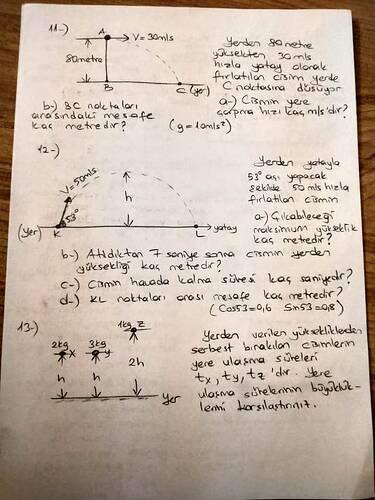 11-)
A
V = 30m/s
80metre
B
C (yer)
Yerden 80 metre
yüksekten 30 m/s
hızla yatay olarak
fırlatılan cisim yerde
C noktasına düşüyor
a-) Cismin yere
çarpma hızı kaç m/s'dir?
b-) BC noktaları
arasındaki mesafe
kaç metredir?
(g = 10m/s²)
12-)
V = 50m/s
h
53°
(Yer)
K
L
yatay
Yerden yatayla
53° açı yapacak
şekilde 50 m/s hızla
fırlatılan cismin
a-) Çıkabileceği
maksimum yükseklik
kaç metredir?
b-) Atıldıktan 7 saniye sonra cismin yerden
yüksekliği kaç metredir?
c-) Cismin havada kalma süresi kaç saniyedir?
d-) KL noktaları arası mesafe kaç metredir?
(Cos53=0,6 Sin53=0,8)
13-)
1kg Z
2kg X
3kg Y
h
h
2h
yer
Yerden verilen yüksekliklerden
serbest bırakılan cisimlerin
yere ulaşma süreleri
tx, ty, tz 'dir. Yere
ulaşma sürelerinin büyüklük-
lerini karşılaştırınız.